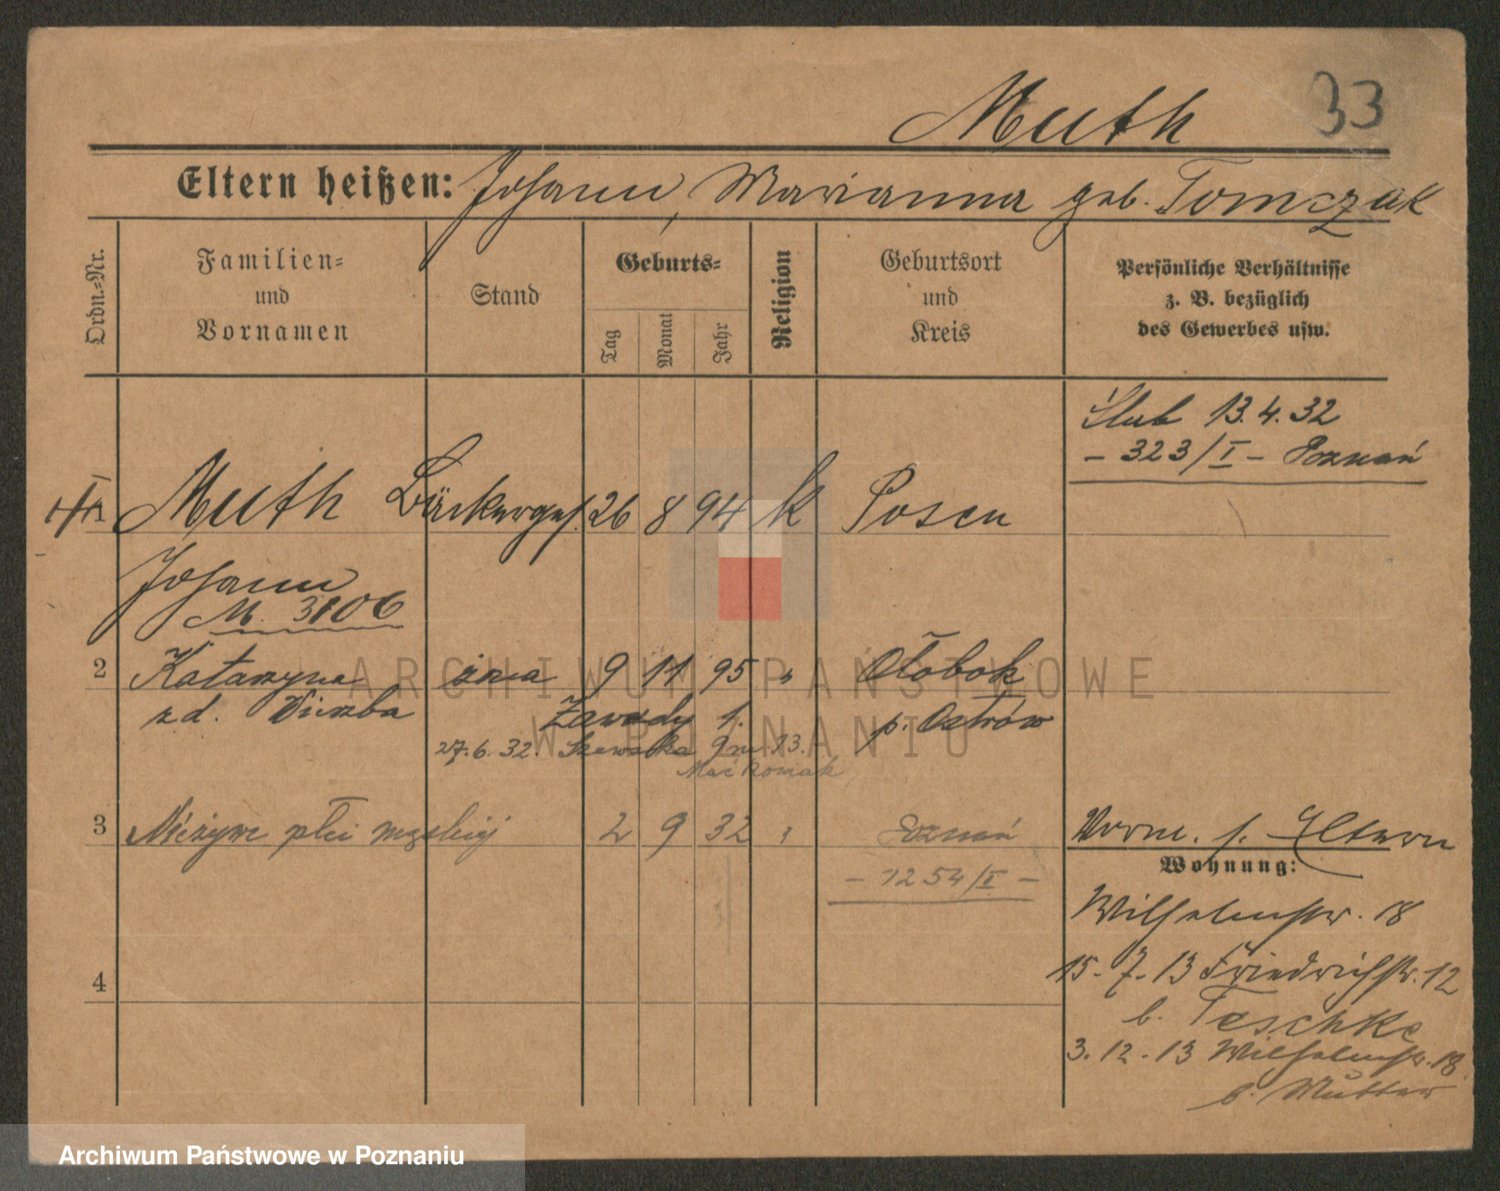 Muth 33
Eltern heißen: Johann, Marianna geb. Tomczak
Ordn.-Nr.
Familien-
und
Vornamen
Stand
Geburts-
Tag
Monat
Jahr
Religion
Geburtsort
und
Kreis
Persönliche Verhältnisse
z. B. bezüglich
des Gewerbes usw.
Ślub 13.4.32
- 323/I - Poznań
Muth Bäckerges. 26 8 94 k Posen
Johann
M. 3106
2 Katarzyna żona 9 11 95 " Ołobok
zd. p. Ostrów
Zawady 1.
27.6.32. 13.
Maćkowiak
3 Nieżywe płci męskiej 2 9 32 " Poznań
- 1254/I -
Vorm. s. Eltern
Wohnung:
Wilhelmstr. 18
15.7.13 Friedrichstr. 12
b. Teschke
3.12.13 Wilhelmstr. 18
b. Mutter
4
ARCHIWUM PAŃSTWOWE
W POZNANIU
Archiwum Państwowe w Poznaniu